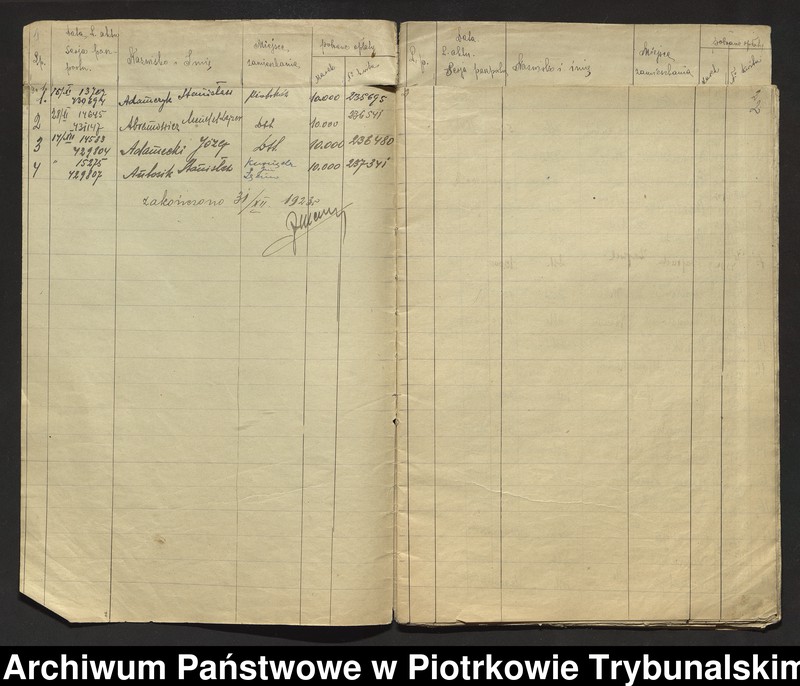 Lp.
Data, L. akt
Serja pasz-
portu
Nazwisko i Imię
Miejsce
zamieszkania
pobrano opłaty
marek
№ kwitu
1. 15/XI 13702 Adamczyk Stanisław Piotrków 10.000 235695
430694
2 14645 Abramowicz dtt. 10.000 236541
431147
3 14/XII 14563 Adamecki Józef dtt. 10.000 236480
429804
4 " 15275 Ambosik Stanisław 10.000 237341
429807
zakończono 31/XII 192
L. p.
Data
L. akt.
Serja paszportu
Nazwisko i imię
Miejsce
zamieszkania
pobrano opłaty
marek
№ kwitu
2
Archiwum Państwowe w Piotrkowie Trybunalskim